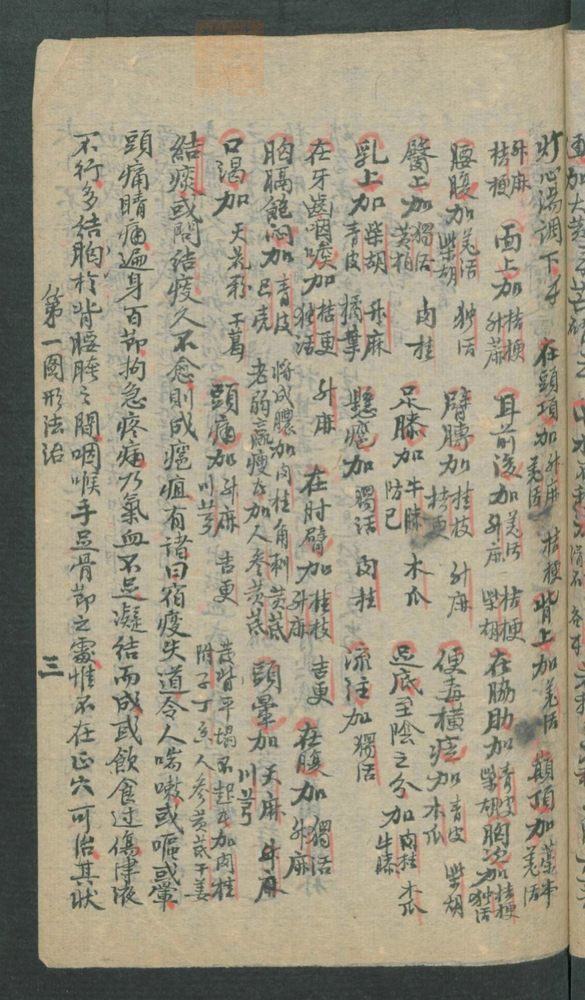 灯心湯調下〻　在頭項加升麻 羗活 桔梗　背上加羗活　顛頂加藁本 羗活
升麻 桔梗　面上加桔梗 升麻　耳前後加羗活 升麻 桔梗 柴胡　在脇肋加青皮 柴胡　胸次加桔梗 独活
腰腹加羗活 柴胡 独活　臂膊加桂枝 桔更 升麻　便毒橫痃加青皮 木瓜 柴胡
臀上加獨活 黄柏 肉桂　足膝加牛膝 防己 木瓜　足底至陰之分加肉桂 牛膝 木瓜
乳上加柴胡 青皮 升麻 橘葉　懸癰加獨活 肉桂　流注加獨活
在牙齒咽喉加桔更 独活 升麻　在肘臂加桂枝 升麻 吉更　在腹加獨活 升麻
胸膈飽悶加青皮 只売　將成膿加肉桂角刺黄芪　老弱羸瘦者加人参黄芪　頭暈加天麻 川芎 升麻
口渴加天花粉 干葛　頭痛加升麻 川芎 吉更　若背平塌不起者加肉桂附子丁香人参黄芪干姜
結痰或問結痰久不愈則成癰疽有諸曰宿痰失道令人喘嗽或嘔或暈
頭痛睛痛遍身百節拘急疼痛乃氣血不足凝結而成或飲食过傷津液
不行多結胸於背腰腌之間咽喉手足骨節之處惟不在正穴可治其状
第一圖形法治　三